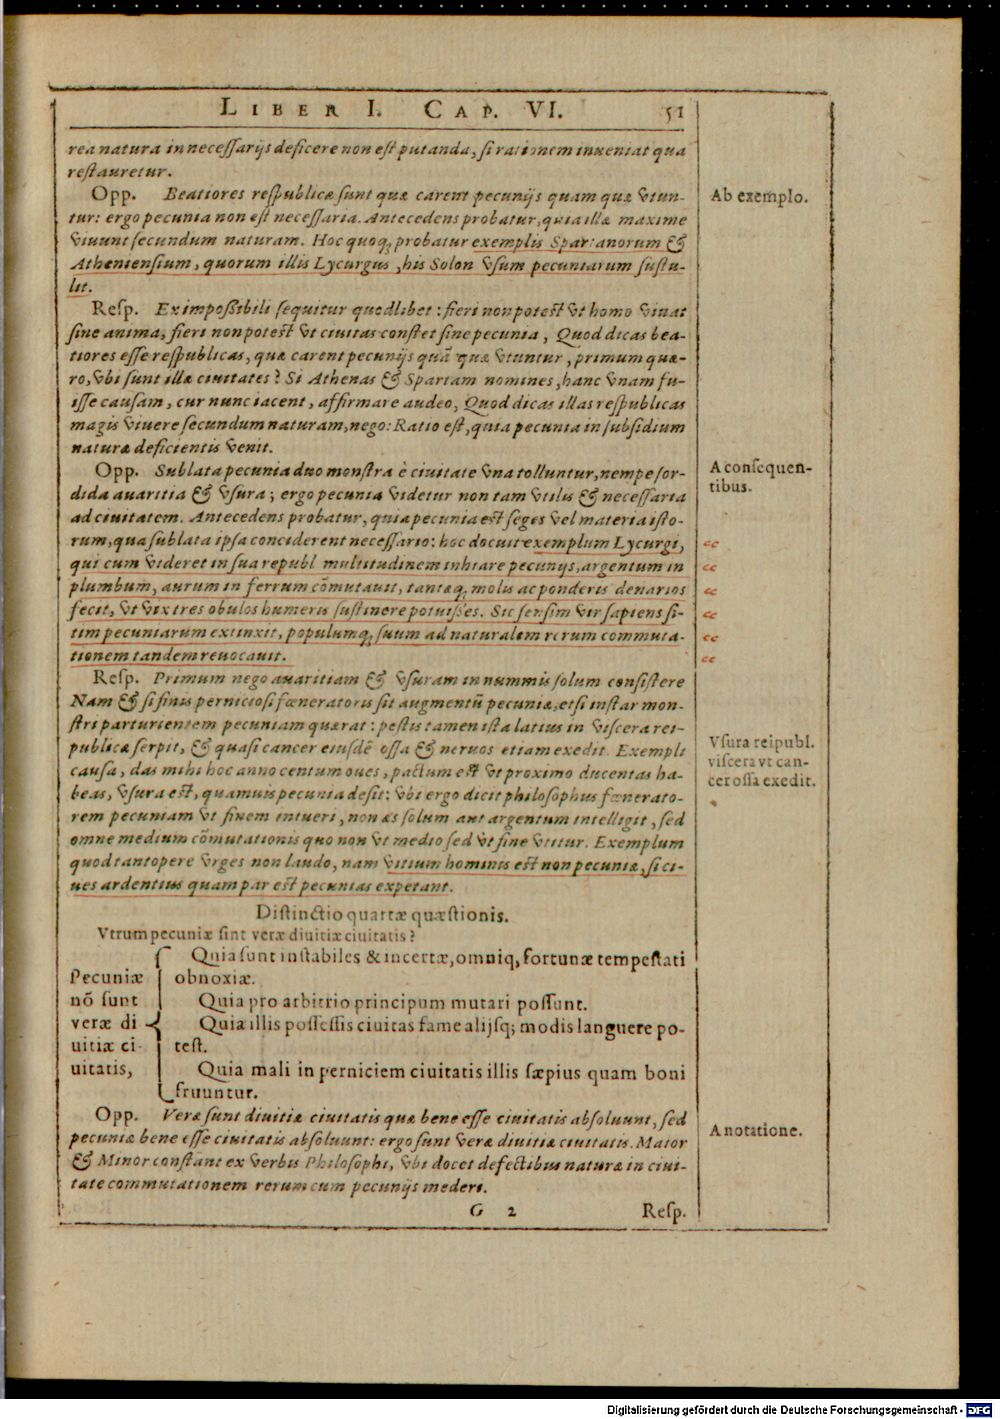 LIBER I. CAP. VI. 51
rea natura in necessarijs deficere non est putanda, si rationem inueniat qua
restauretur.
Opp. Beatiores respublicæ sunt quæ carent pecunijs quam quæ vtun-
tur: ergo pecunia non est necessaria. Antecedens probatur, quia illæ maxime
viuunt secundum naturam. Hoc quoq; probatur exemplis Spartanorum &
Atheniensium, quorum illis Lycurgus, his Solon vsum pecuniarum sustu-
lit.
Ab exemplo.
Resp. Ex impossibili sequitur quodlibet: fieri non potest vt homo viuat
sine anima, fieri non potest vt ciuitas constet sine pecunia, Quod dicas bea-
tiores esse respublicas, quæ carent pecunijs quã quæ vtuntur, primum quæ-
ro, vbi sunt illæ ciuitates? Si Athenas & Spartam nomines, hanc vnam fu-
isse causam, cur nunc iacent, affirmare audeo, Quod dicas illas respublicas
magis viuere secundum naturam, nego: Ratio est, quia pecunia in subsidium
naturæ deficientis venit.
Opp. Sublata pecunia duo monstra è ciuitate vna tolluntur, nempe sor-
dida auaritia & vsura; ergo pecunia videtur non tam vtilis & necessaria
ad ciuitatem. Antecedens probatur, quia pecunia est seges vel materia isto-
rum, qua sublata ipsa conciderent necessario: hoc docuit exemplum Lycurgi,
qui cum videret in sua republ. multitudinem inhiare pecunijs, argentum in
plumbum, aurum in ferrum cõmutauit, tantæq; molis ac ponderis denarios
fecit, vt vix tres obulos humeris sustinere potuisses. Sic sensim vir sapiens si-
tim pecuniarum extinxit, populumq; suum ad naturalem rerum commuta-
tionem tandem reuocauit.
A consequen-
tibus.
Resp. Primum nego auaritiam & vsuram in nummis solum consistere
Nam & si finis perniciosi fœneratoris sit augmentũ pecuniæ, etsi instar mon-
stri parturientem pecuniam quærat: pestis tamen ista latius in viscera rei-
publicæ serpit, & quasi cancer eiusdẽ ossa & neruos etiam exedit. Exempli
causa, das mihi hoc anno centum oues, pactum est vt proximo ducentas ha-
beas, vsura est, quamuis pecunia desit: vbi ergo dicit philosophus fœnerato-
rem pecuniam vt finem intueri, non æs solum aut argentum intelligit, sed
omne medium cõmutationis quo non vt medio sed vt fine vtitur. Exemplum
quod tantopere vrges non laudo, nam vitium hominis est non pecuniæ, si ci-
ues ardentius quam par est pecunias expetant.
Vsura reipubl.
viscera vt can-
cer ossa exedit.
Distinctio quartæ quæstionis.
Vtrum pecuniæ sint veræ diuitiæ ciuitatis?
Pecuniæ
nõ sunt
veræ di
uitiæ ci-
uitatis,
Quia sunt instabiles & incertæ, omniq; fortunæ tempestati
obnoxiæ.
Quia pro arbitrio principum mutari possunt.
Quia illis possessis ciuitas fame alijsq; modis languere po-
test.
Quia mali in perniciem ciuitatis illis sæpius quam boni
fruuntur.
Opp. Veræ sunt diuitiæ ciuitatis quæ bene esse ciuitatis absoluunt, sed
pecuniæ bene esse ciuitatis absoluunt: ergo sunt veræ diuitiæ ciuitatis. Maior
& Minor constant ex verbis Philosophi, vbi docet defectibus naturæ in ciui-
tate commutationem rerum cum pecunijs mederi.
A notatione.
G 2 Resp.
Digitalisierung gefördert durch die Deutsche Forschungsgemeinschaft - DFG